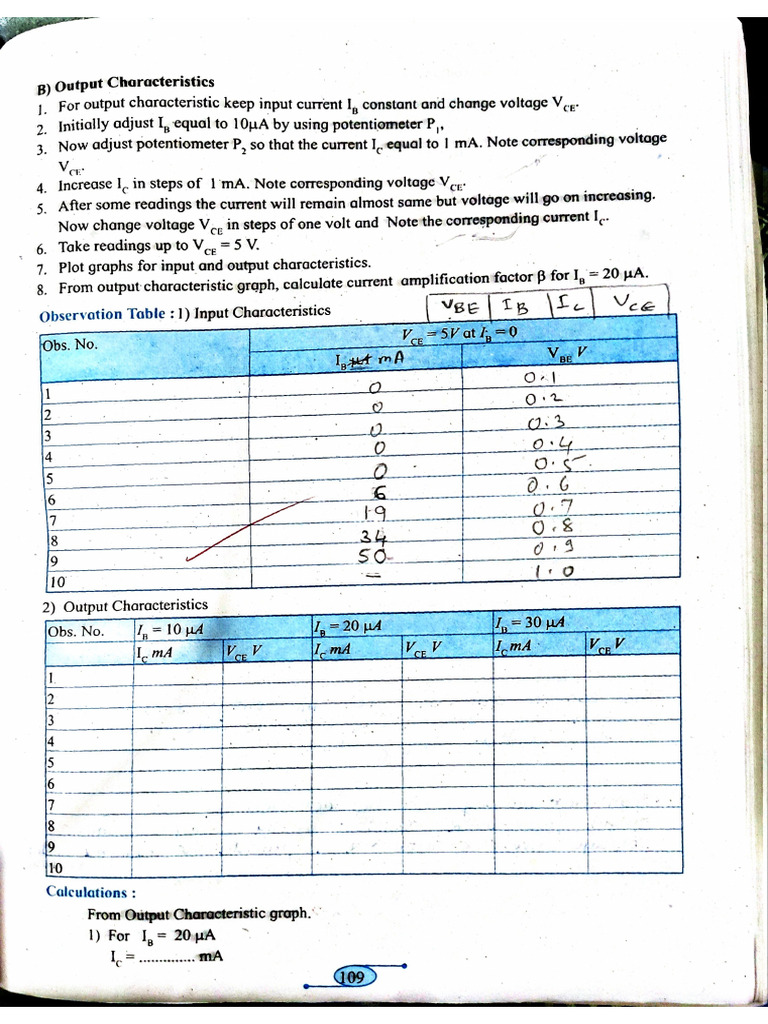 B) Output Characteristics
1. For output characteristic keep input current I_B constant and change voltage V_CE.
2. Initially adjust I_B equal to 10µA by using potentiometer P_1,
3. Now adjust potentiometer P_2 so that the current I_C equal to 1 mA. Note corresponding voltage
V_CE.
4. Increase I_C in steps of 1 mA. Note corresponding voltage V_CE.
5. After some readings the current will remain almost same but voltage will go on increasing.
Now change voltage V_CE in steps of one volt and Note the corresponding current I_C.
6. Take readings up to V_CE = 5 V.
7. Plot graphs for input and output characteristics.
8. From output characteristic graph, calculate current amplification factor β for I_B = 20 µA.
V_BE | I_B | I_C | V_CE
Observation Table : 1) Input Characteristics
Obs. No. V_CE = 5V at I_B = 0
I_B mA V_BE V
1 0 0.1
2 0 0.2
3 0 0.3
4 0 0.4
5 0 0.5
6 6 0.6
7 19 0.7
8 34 0.8
9 50 0.9
10 – 1.0
2) Output Characteristics
Obs. No. I_B = 10 µA I_B = 20 µA I_B = 30 µA
I_C mA V_CE V I_C mA V_CE V I_C mA V_CE V
1
2
3
4
5
6
7
8
9
10
Calculations :
From Output Characteristic graph.
1) For I_B = 20 µA
I_C = .............. mA
109